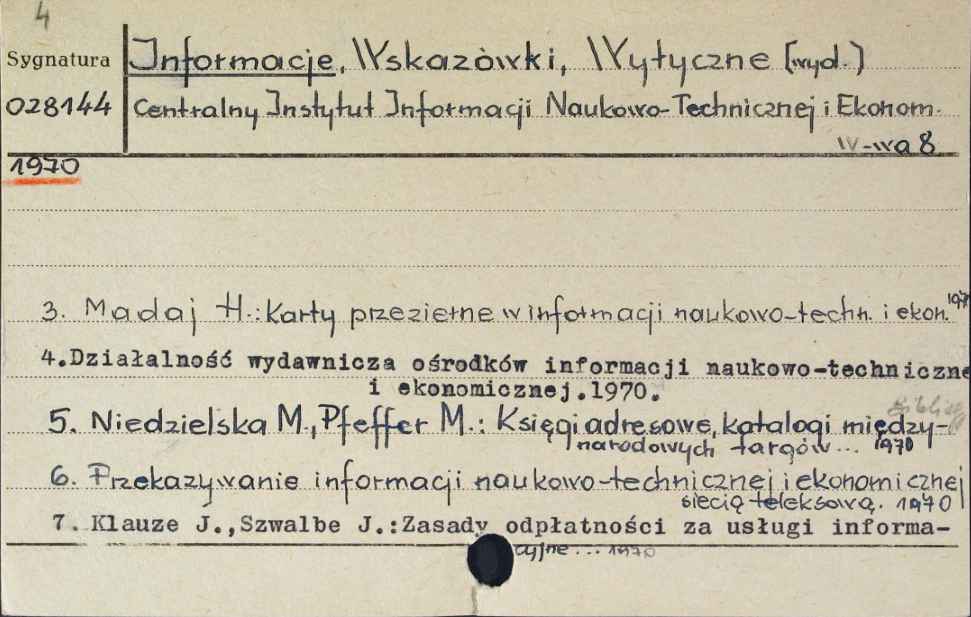 4
Sygnatura
Informacje, Wskazówki, Wytyczne [wyd.]
028144
Centralny Instytut Informacji Naukowo-Technicznej i Ekonom.
W-wa 8
1970
3. Madaj H.: Karty przezierne w informacji naukowo-techn. i ekon. 1970
4.Działalność wydawnicza ośrodków informacji naukowo-techniczne
i ekonomicznej.1970.
5. Niedzielska M., Pfeffer M.: Księgi adresowe, katalogi między-
narodowych targów... 1970
6. Przekazywanie informacji naukowo-technicznej i ekonomicznej
siecią teleksową. 1970
7. Klauze J.,Szwalbe J.:Zasady odpłatności za usługi informa-
cyjne... 1970